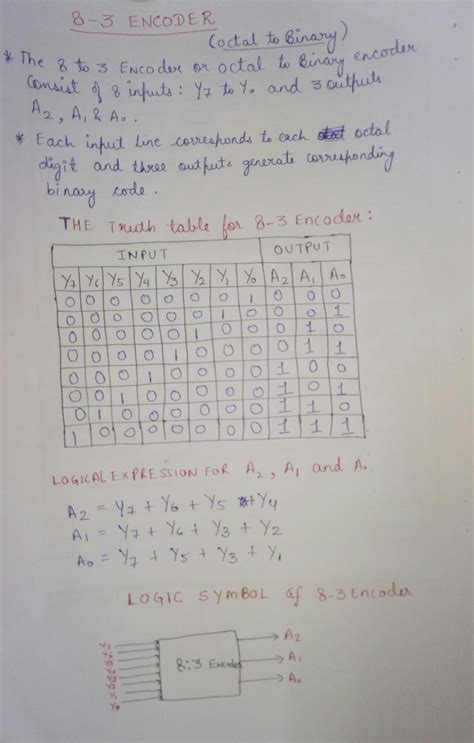 8-3 ENCODER
(octal to Binary)
* The 8 to 3 ENCODER or octal to Binary encoder
Consist of 8 inputs: Y7 to Y0 and 3 outputs
A2, A1 & A0.
* Each input line corresponds to each octal
digit and three outputs generate corresponding
binary code.
THE Truth table for 8-3 Encoder:
INPUT OUTPUT
Y7 Y6 Y5 Y4 Y3 Y2 Y1 Y0 A2 A1 A0
0 0 0 0 0 0 0 1 0 0 0
0 0 0 0 0 0 1 0 0 0 1
0 0 0 0 0 1 0 0 0 1 0
0 0 0 0 1 0 0 0 0 1 1
0 0 0 1 0 0 0 0 1 0 0
0 0 1 0 0 0 0 0 1 0 1
0 1 0 0 0 0 0 0 1 1 0
1 0 0 0 0 0 0 0 1 1 1
LOGICAL EXPRESSION FOR A2, A1 and A0
A2 = Y7 + Y6 + Y5 + Y4
A1 = Y7 + Y6 + Y3 + Y2
A0 = Y7 + Y5 + Y3 + Y1
LOGIC SYMBOL of 8-3 Encoder
8:3 Encoder
A2
A1
A0
Y0